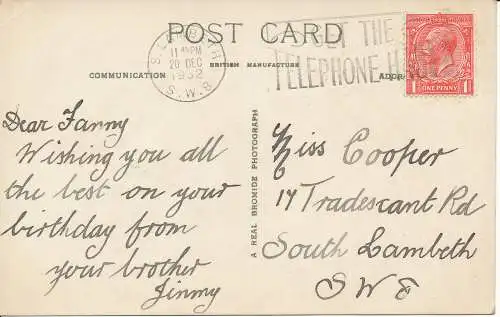 POST CARD
S. LAMBETH
11 PM
20 DEC
1932
S.W.8
GET THE
TELEPHONE
COMMUNICATION
BRITISH MANUFACTURE
ONE PENNY
Dear Fanny
Wishing you all
the best on your
birthday from
your brother
Jimmy
A REAL BROMIDE PHOTOGRAPH
Miss Cooper
17 Tradescant Rd
South Lambeth
SW8